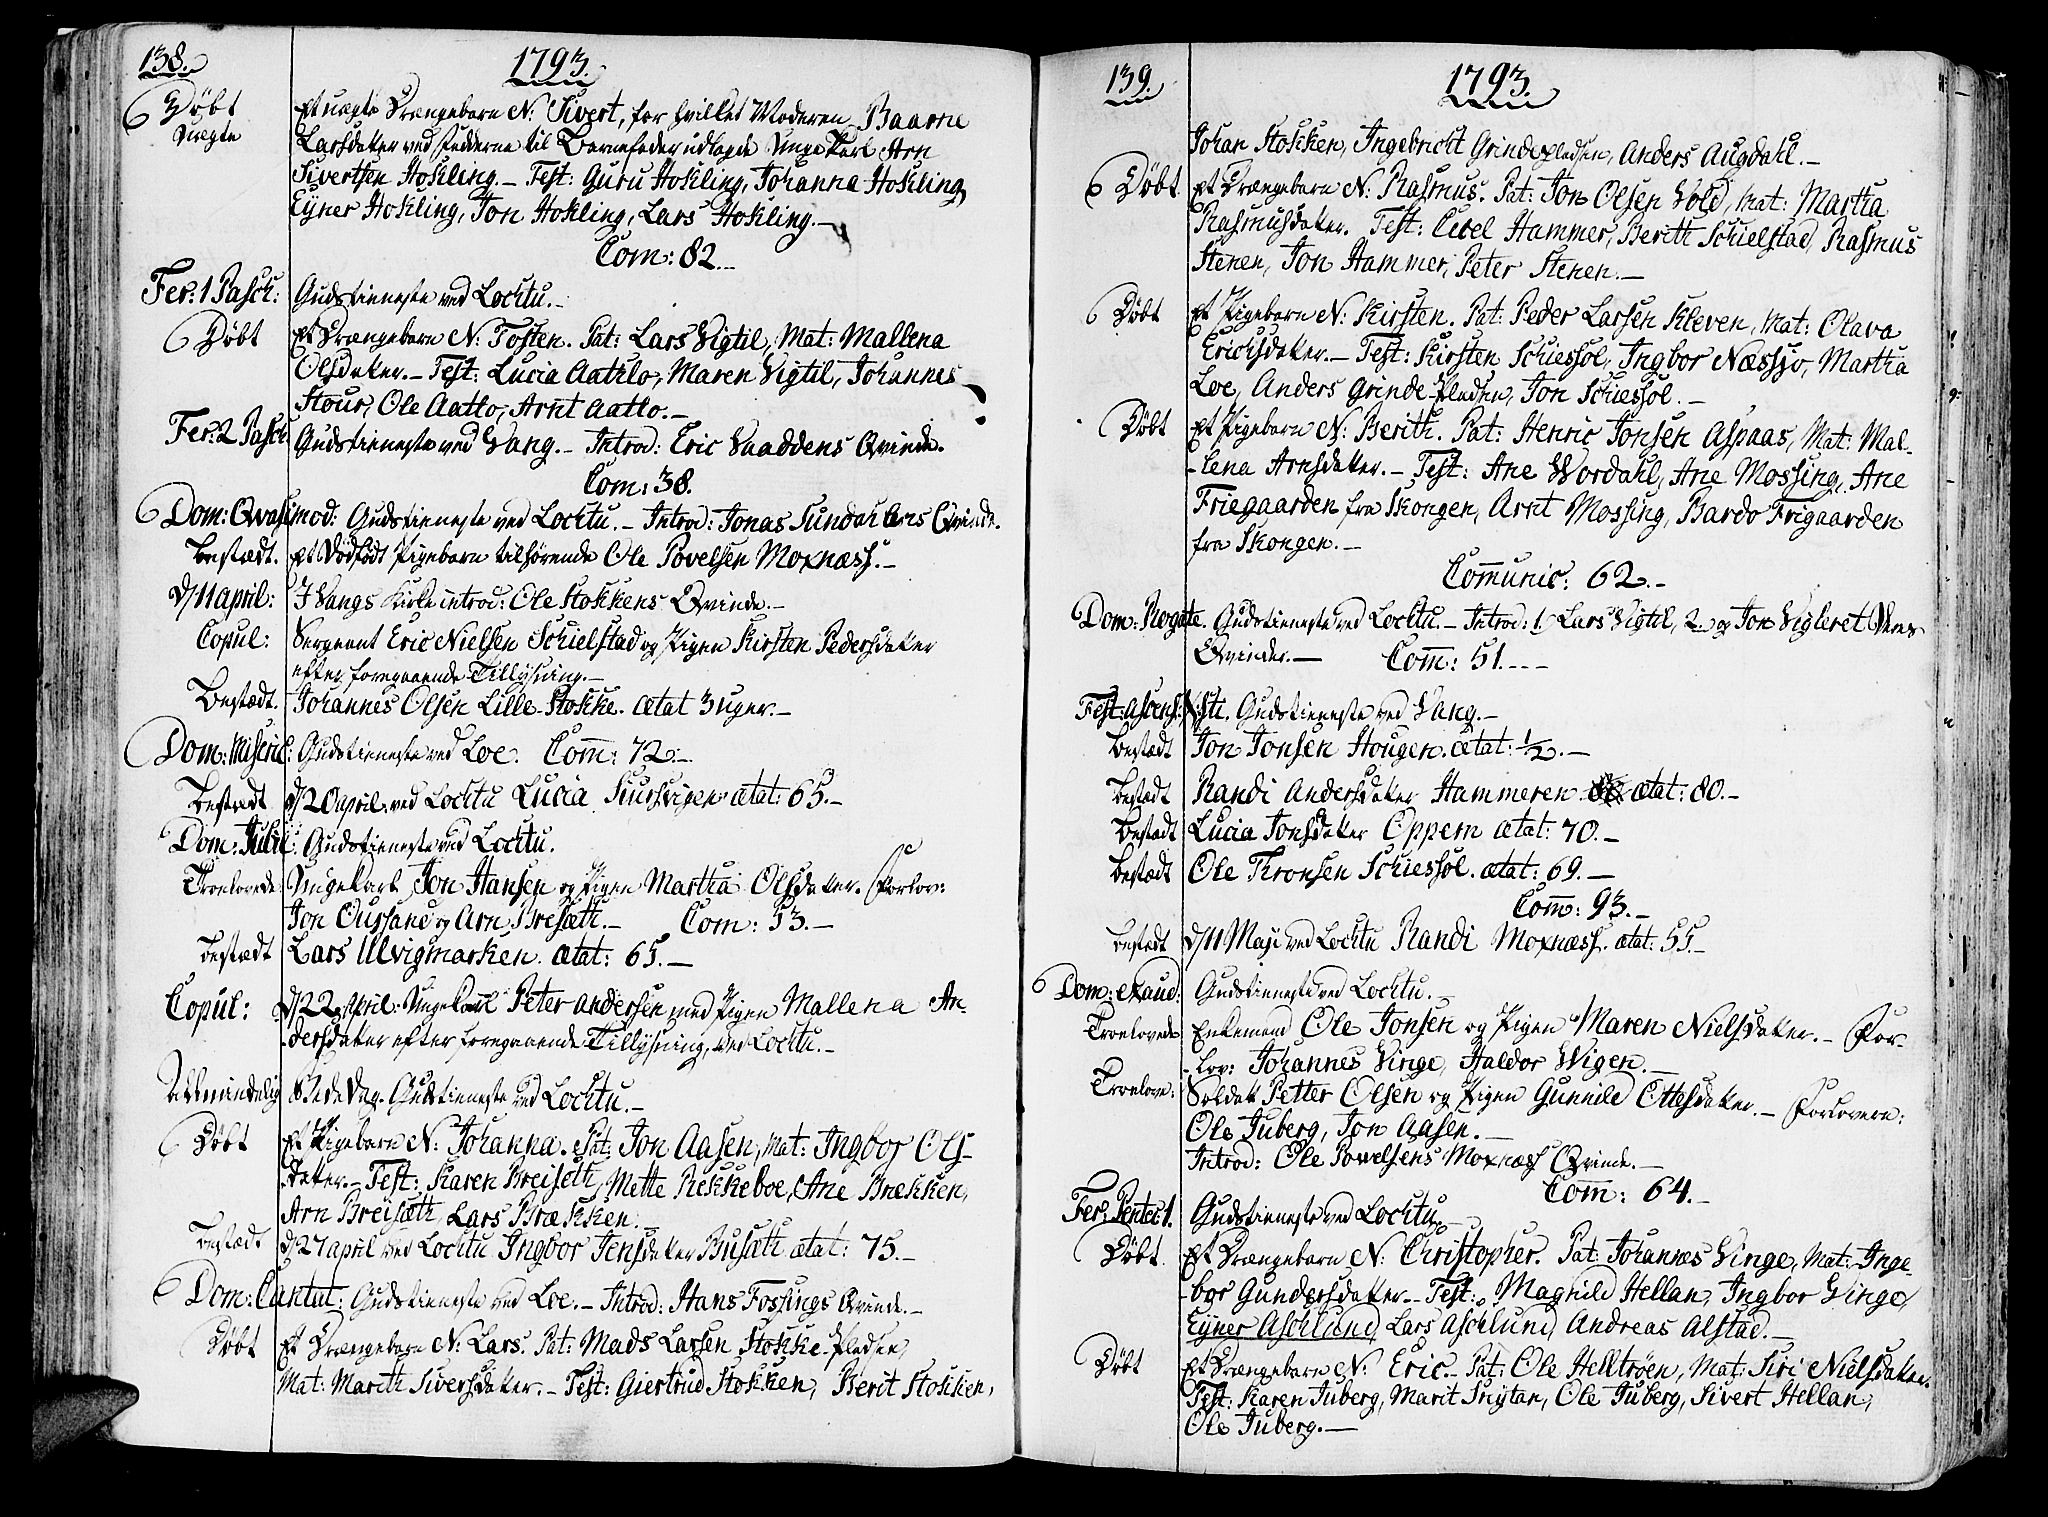 138.
1793.
Døbt Et uægte Drængebarn N: Sivert, for hvilket Moderen Baarne
Uægte Larsdater ved Fadderne til Barnefader udlagde Unge Karl Arn
Sivertsen Hokling.— Test: Guru Hokling, Johanna Hokling,
Ejner Hokling, Jon Hokling, Lars Hokling.—
Com: 82.
Fer: 1 Pasch: Gudstieneste ved Lochtu.—
Døbt Et Drængebarn N: Tosten. Pat: Lars Vigtil, Mat: Mallena
Olsdater.— Test: Lucia Aatlo, Maren Vigtil, Johannes
Stour, Ole Aatlo, Arnt Aatlo.—
Fer: 2 Pasch Gudstieneste ved Vang.— Introd: Eric Vaaddens Qvinde.
Com: 38.
Dom: Qvasimod: Gudstieneste ved Lochtu.— Introd: Jonas Sundahlens Qvinde.
Bestædt. Et Dødfødt Pigebarn tilhørende Ole Povelsen Moxnæss.—
d/11 april: I Vangs Kirke introd: Ole Stokkens Qvinde.—
Copul: Sergeant Eric Nielsen Schielstad og Pigen Kirsten Pedersdater
efter foregaaende Tillysning.—
Bestædt. Johannes Olsen Lille-Stokke. ætat 3 uger.—
Dom: Miseric: Gudstieneste ved Loe. Com: 72.—
Bestædt d/20 april ved Lochtu Lucia Skursvigen ætat: 65.—
Dom: Jubil: Gudstieneste ved Lochtu.
Troelovede Ungekarl Jon Hansen og Pigen Martha Olsdater. Forlov:
Jon Oussand og Arn Bresæth.— Com: 53.—
Bestædt Lars Ulvigmarken. ætat: 65.—
Copul: d/22 April: Ungekarl Peter Andersen med Pigen Mallena An-
-dersdater efter foregaaende Tillysning, ved Lochtu.—
Allmindelig Bededag. Gudstieneste ved Lochtu.—
Døbt Et Pigebarn N: Johanna. Pat: Jon Aasen, Mat: Ingbor Ols-
dater.— Test: Karen Breiseth, Mette Rekkeboe, Ane Brækken,
Arn Breisæth, Lars Brækken.
Bestædt d/27 april ved Lochtu Ingbor Jensdater Busæth ætat: 75.—
Dom: Cantat: Gudstieneste ved Loe.— Introd: Hans Fossings Qvinde.—
Døbt Et Drængebarn N: Lars. Pat: Mads Larsen Stokke-Pladsen,
Mat: Marith Siversdater.— Test: Giertrud Stokken, Berit Stokken,
139.
1793.
Johan Stokken, Ingebricht Grindepladsen, Anders Augdahl.—
Døbt Et Drængebarn N: Rasmus. Pat: Jon Olsen Vold, Mat: Martha
Rasmusdater. Test: Cecel Hammer, Berith Schielstad, Rasmus
Stenen, Jon Hammer, Peter Stenen.—
Døbt Et Pigebarn N: Kirsten. Pat: Peder Larsen Kleven, Mat: Olava
Ericksdater.— Test: Kirsten Schiessol, Ingbor Næssjo, Martha
Loe, Anders Grinde-Pladsen, Jon Schiessol.—
Døbt Et Pigebarn N: Berith. Pat: Henric Jonsen Aspaas, Mat: Mal-
-lena Arnsdater.— Test: Ane Wordahl, Ane Mossing, Ane
Friegaarden fra Skongen, Arnt Mossing, Bardo Frigaarden
fra Skongen.—
Communic: 62.—
Dom: Rogate. Gudstieneste ved Lochtu.— Introd: 1, Lars Vigtil, 2. og Jon Vigleret Deres
Qvinder.— Com: 51.—
Fest: Ascens: Xsti. Gudstieneste ved Vang.—
Bestædt Jon Jonsen Hougen. ætat: 1/2.—
Bestædt Randi Andersdater Hammeren ætat: 80.—
Bestædt Lucia Jonsdater Oppem ætat: 70.—
Bestædt Ole Thronsen Schiessol. ætat: 69.—
Com: 93.—
Bestædt d/11 Maji ved Lochtu Randi Moxnæss. ætat: 55.—
Dom: Exaud: Gudstieneste ved Lochtu.—
Troelovede Enkemand Ole Jonsen og Pigen Maren Nielsdater.— For-
-lov: Johannes Vinge, Haldor Wigen.—
Troelove: Soldat Petter Olsen og Pigen Gunnild Ottesdater.— Forlovere:
Ole Juberg, Jon Aasen.—
Introd: Ole Powelsens Moxnæss Qvinde.—
Com: 64.—
Fer: Pentec: 1. Gudstieneste ved Lochtu
Døbt Et Drængebarn N: Christopher. Pat: Johannes Vinge, Mat: Inge-
-bor Gundersdater.— Test: Maghild Hellan, Ingbor Vinge,
Ejner Aschlund, Lars Aschlund, Andreas Alstad.—
Døbt Et Drængebarn N: Eric.— Pat: Ole Helltrøen, Mat: Siri Nielsdater.
Test: Karen Juberg, Marit Snytan, Ole Juberg, Sivert Hellan,
Ole Juberg.—